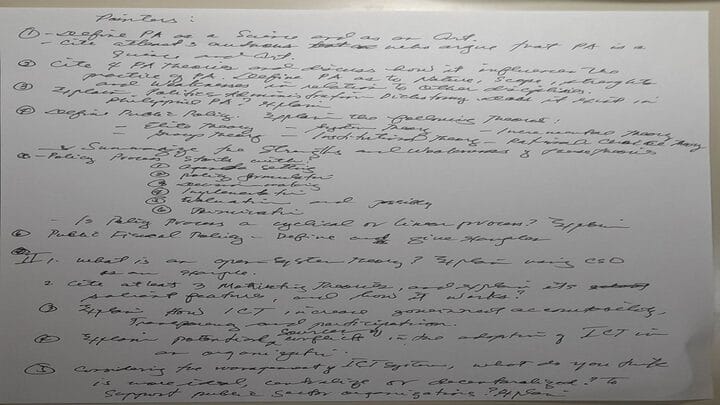 Pointers:
① - Define PA as a Science and as an Art.
- Cite atleast 3 authors who argue that PA is a
Science and Art.
② Cite 4 PA Theories and discuss how it influences the
practice of PA. Define PA as to Nature, Scope, strengths
and weaknesses in relation to other disciplines.
③ Explain - Politics-Administration Dichotomy does it exist in
Philippine PA? Explain
④ Define Public Policy. Explain the following Theories:
- Elite Theory - System Theory - Incremental Theory
- Group Theory - Institutional Theory - Rational Choice Theory
Summarize the Strengths and Weaknesses of these theories
- Policy Process starts with:
① agenda setting
② policy formulation
③ decision making
④ Implementation
⑤ Evaluation and
⑥ Termination
- Is Policy Process a cyclical or linear process? Explain
⑥ Public Fiscal Policy - Define and give examples
II 1. What is an open-system theory? Explain using CSO
as an example.
2. Cite atleast 3 Motivating Theories, and explain its
salient features, and how it works?
③ Explain how ICT increase government accountability,
Transparency and participation.
④ Explain potential sources of conflicts in the adoption of ICT in
an organization.
⑤ Considering the management of ICT systems, what do you think
is more ideal, centralize or decentralized? to
support public sector organizations? Explain